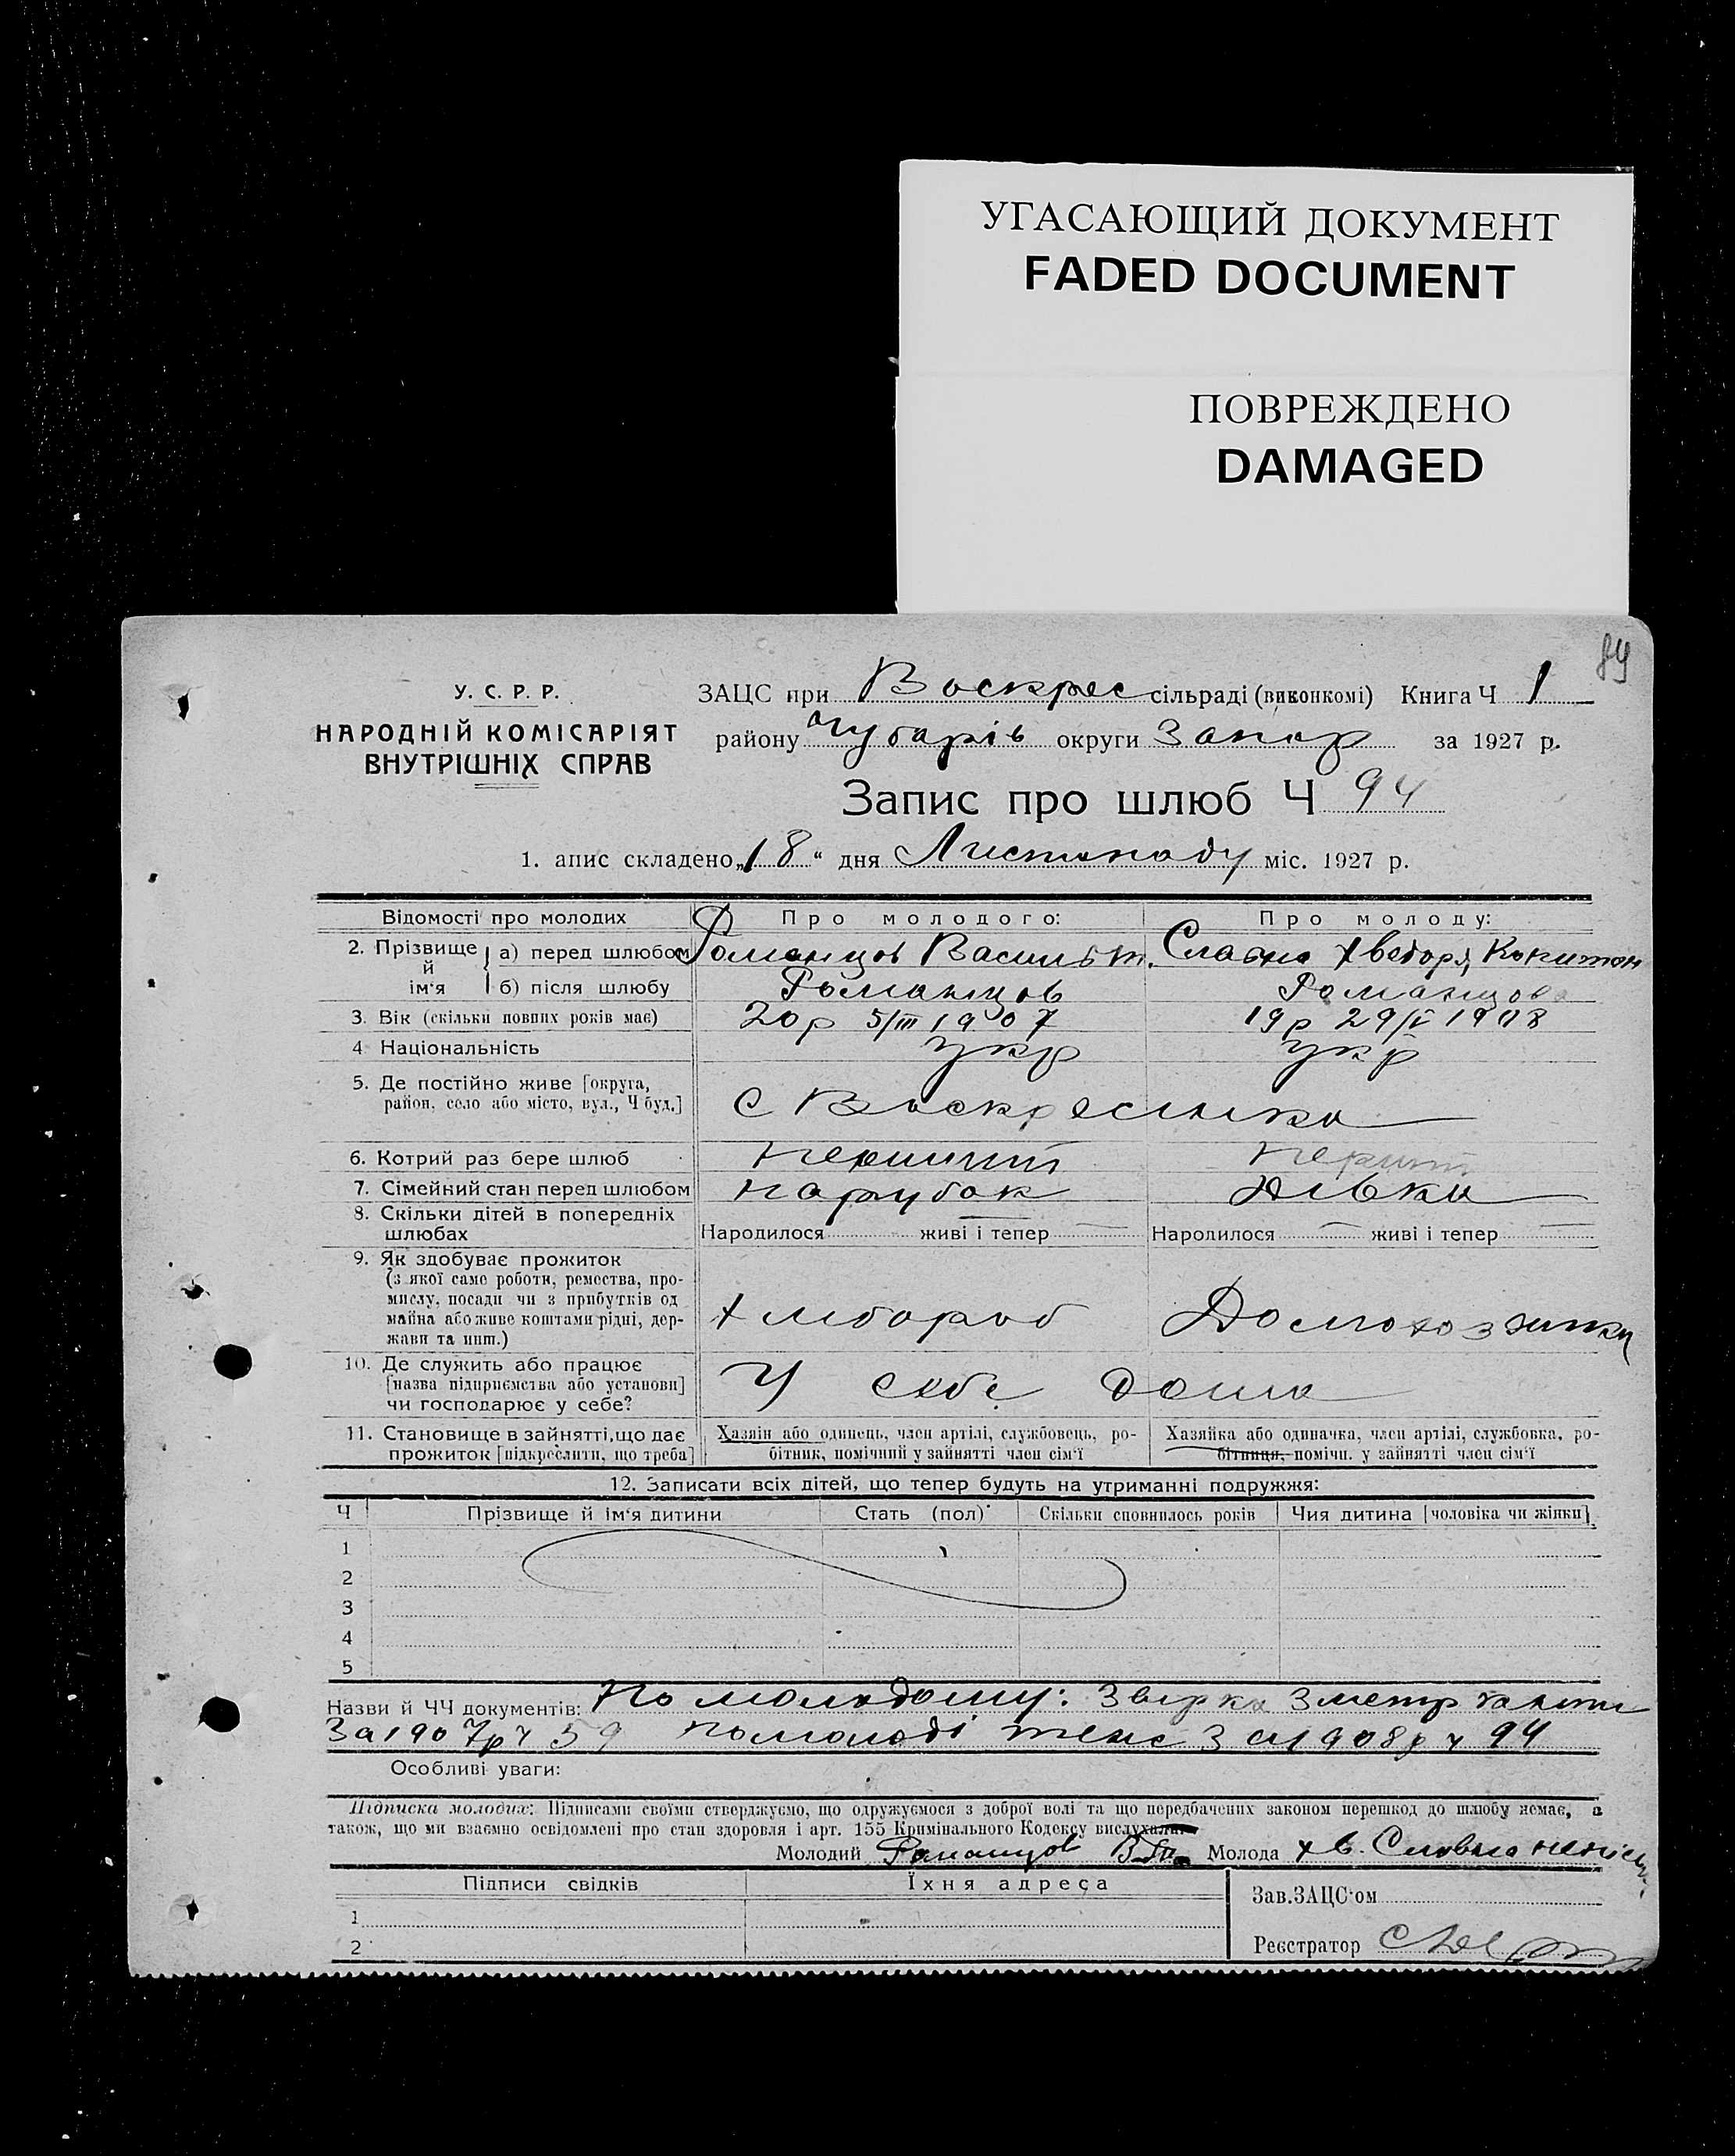 УГАСАЮЩИЙ ДОКУМЕНТ
FADED DOCUMENT
ПОВРЕЖДЕНО
DAMAGED
У. С. Р. Р.
НАРОДНІЙ КОМІСАРІЯТ
ВНУТРІШНІХ СПРАВ
ЗАЦС при Воскрес сільраді (виконкомі) Книга Ч 1
району Чубарів округи Запор за 1927 р.
Запис про шлюб Ч 94
1. апис складено „18“ дня Листопаду міс. 1927 р.
Відомості про молодих Про молодого: Про молоду:
2. Прізвище й ім‘я
а) перед шлюбом Романцов Василь Т. Славна Хведоря
б) після шлюбу Романцов Романцова
3. Вік (скільки повних років має) 20 р 5/III 1907 19 р 29/V 1908
4 Національність укр укр
5. Де постійно живе [округа,
район, село або місто, вул., Ч буд.] с Воскресинка
6. Котрий раз бере шлюб Перший
7. Сімейний стан перед шлюбом парубок дівка
8. Скільки дітей в попередніх
шлюбах Народилося живі і тепер Народилося живі і тепер
9. Як здобуває прожиток
(з якої саме роботи, ремества, про-
мислу, посади чи з прибутків од
майна або живе коштами рідні, дер-
жави та инш.) Хлібороб Домохозяика
10. Де служить або працює
[назва підприємства або установи]
чи господарює у себе? У себе дома
11. Становище в зайнятті, що дає
прожиток [підкреслити, що треба]
Хазяїн або одинець, член артілі, службовець, ро-
бітник, помічний у зайнятті член сім‘ї
Хазяйка або одиначка, член артілі, службовка, ро-
бітниця, помічн. у зайнятті член сім‘ї
12. Записати всіх дітей, що тепер будуть на утриманні подружжя:
Ч Прізвище й ім‘я дитини Стать (пол) Скільки сповнилось років Чия дитина [чоловіка чи жінки]
1
2
3
4
5
Назви й ЧЧ документів: По молодому: Звірка З метр
За 1907 р ч 59 по молоді теж З а 1908 р ч 94
Особливі уваги:
Підписка молодих: Підписами своїми стверджуємо, що одружуємося з доброї волі та що передбачених законом перешкод до шлюбу немає, а
також, що ми взаємно освідомлені про стан здоровля і арт. 155 Кримінального Кодексу вислухали.
Молодий Романцов Молода Хв. Славна
Підписи свідків Їхня адреса
Зав.ЗАЦС‘ом
1
2
Реєстратор